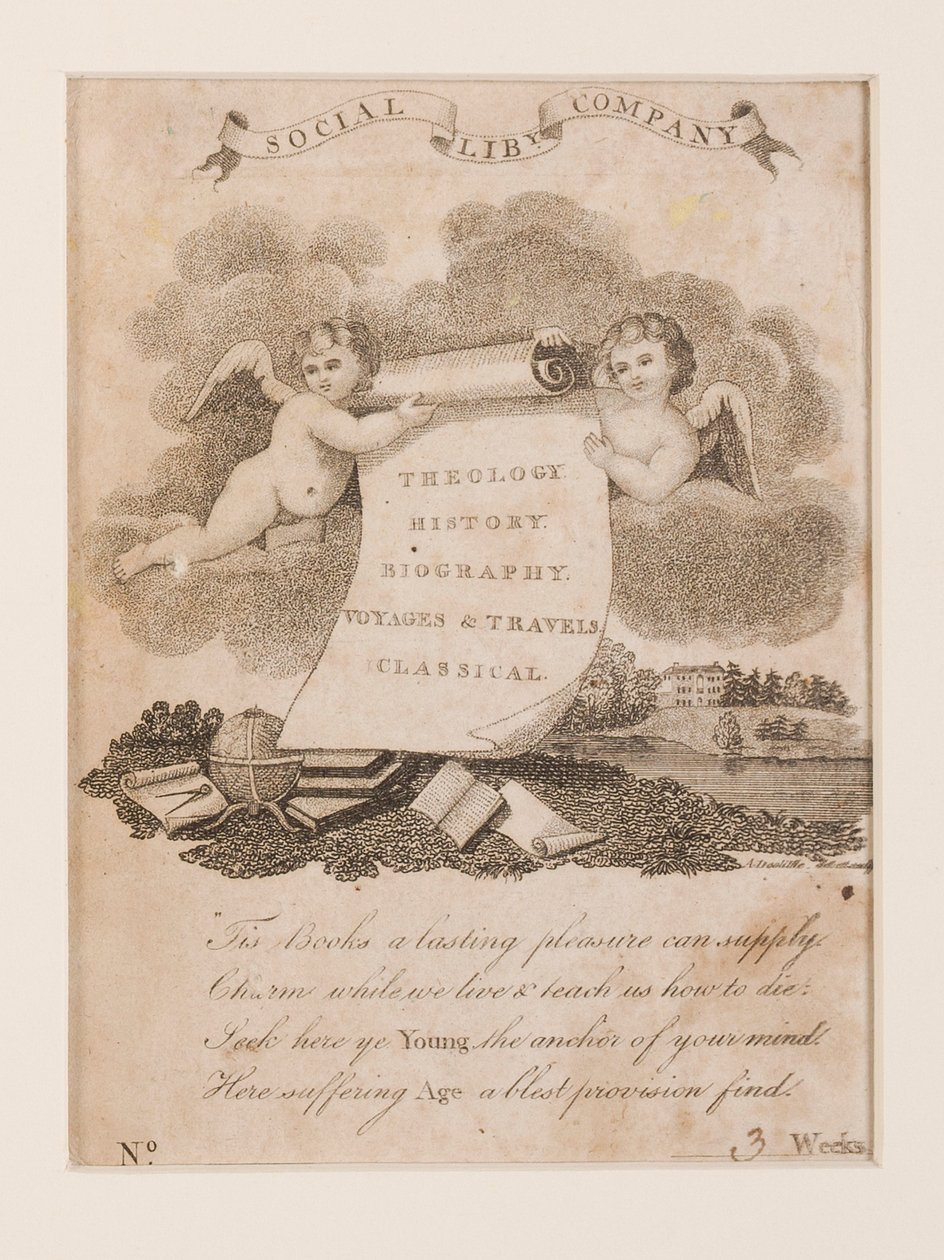 SOCIAL LIBY COMPANY
THEOLOGY.
HISTORY.
BIOGRAPHY.
VOYAGES & TRAVELS.
CLASSICAL.
"Tis Books a lasting pleasure can supply.
Charm while we live & teach us how to die:
Seek here ye Young the anchor of your mind.
Here suffering Age a blest provision find.
No. 3 Weeks